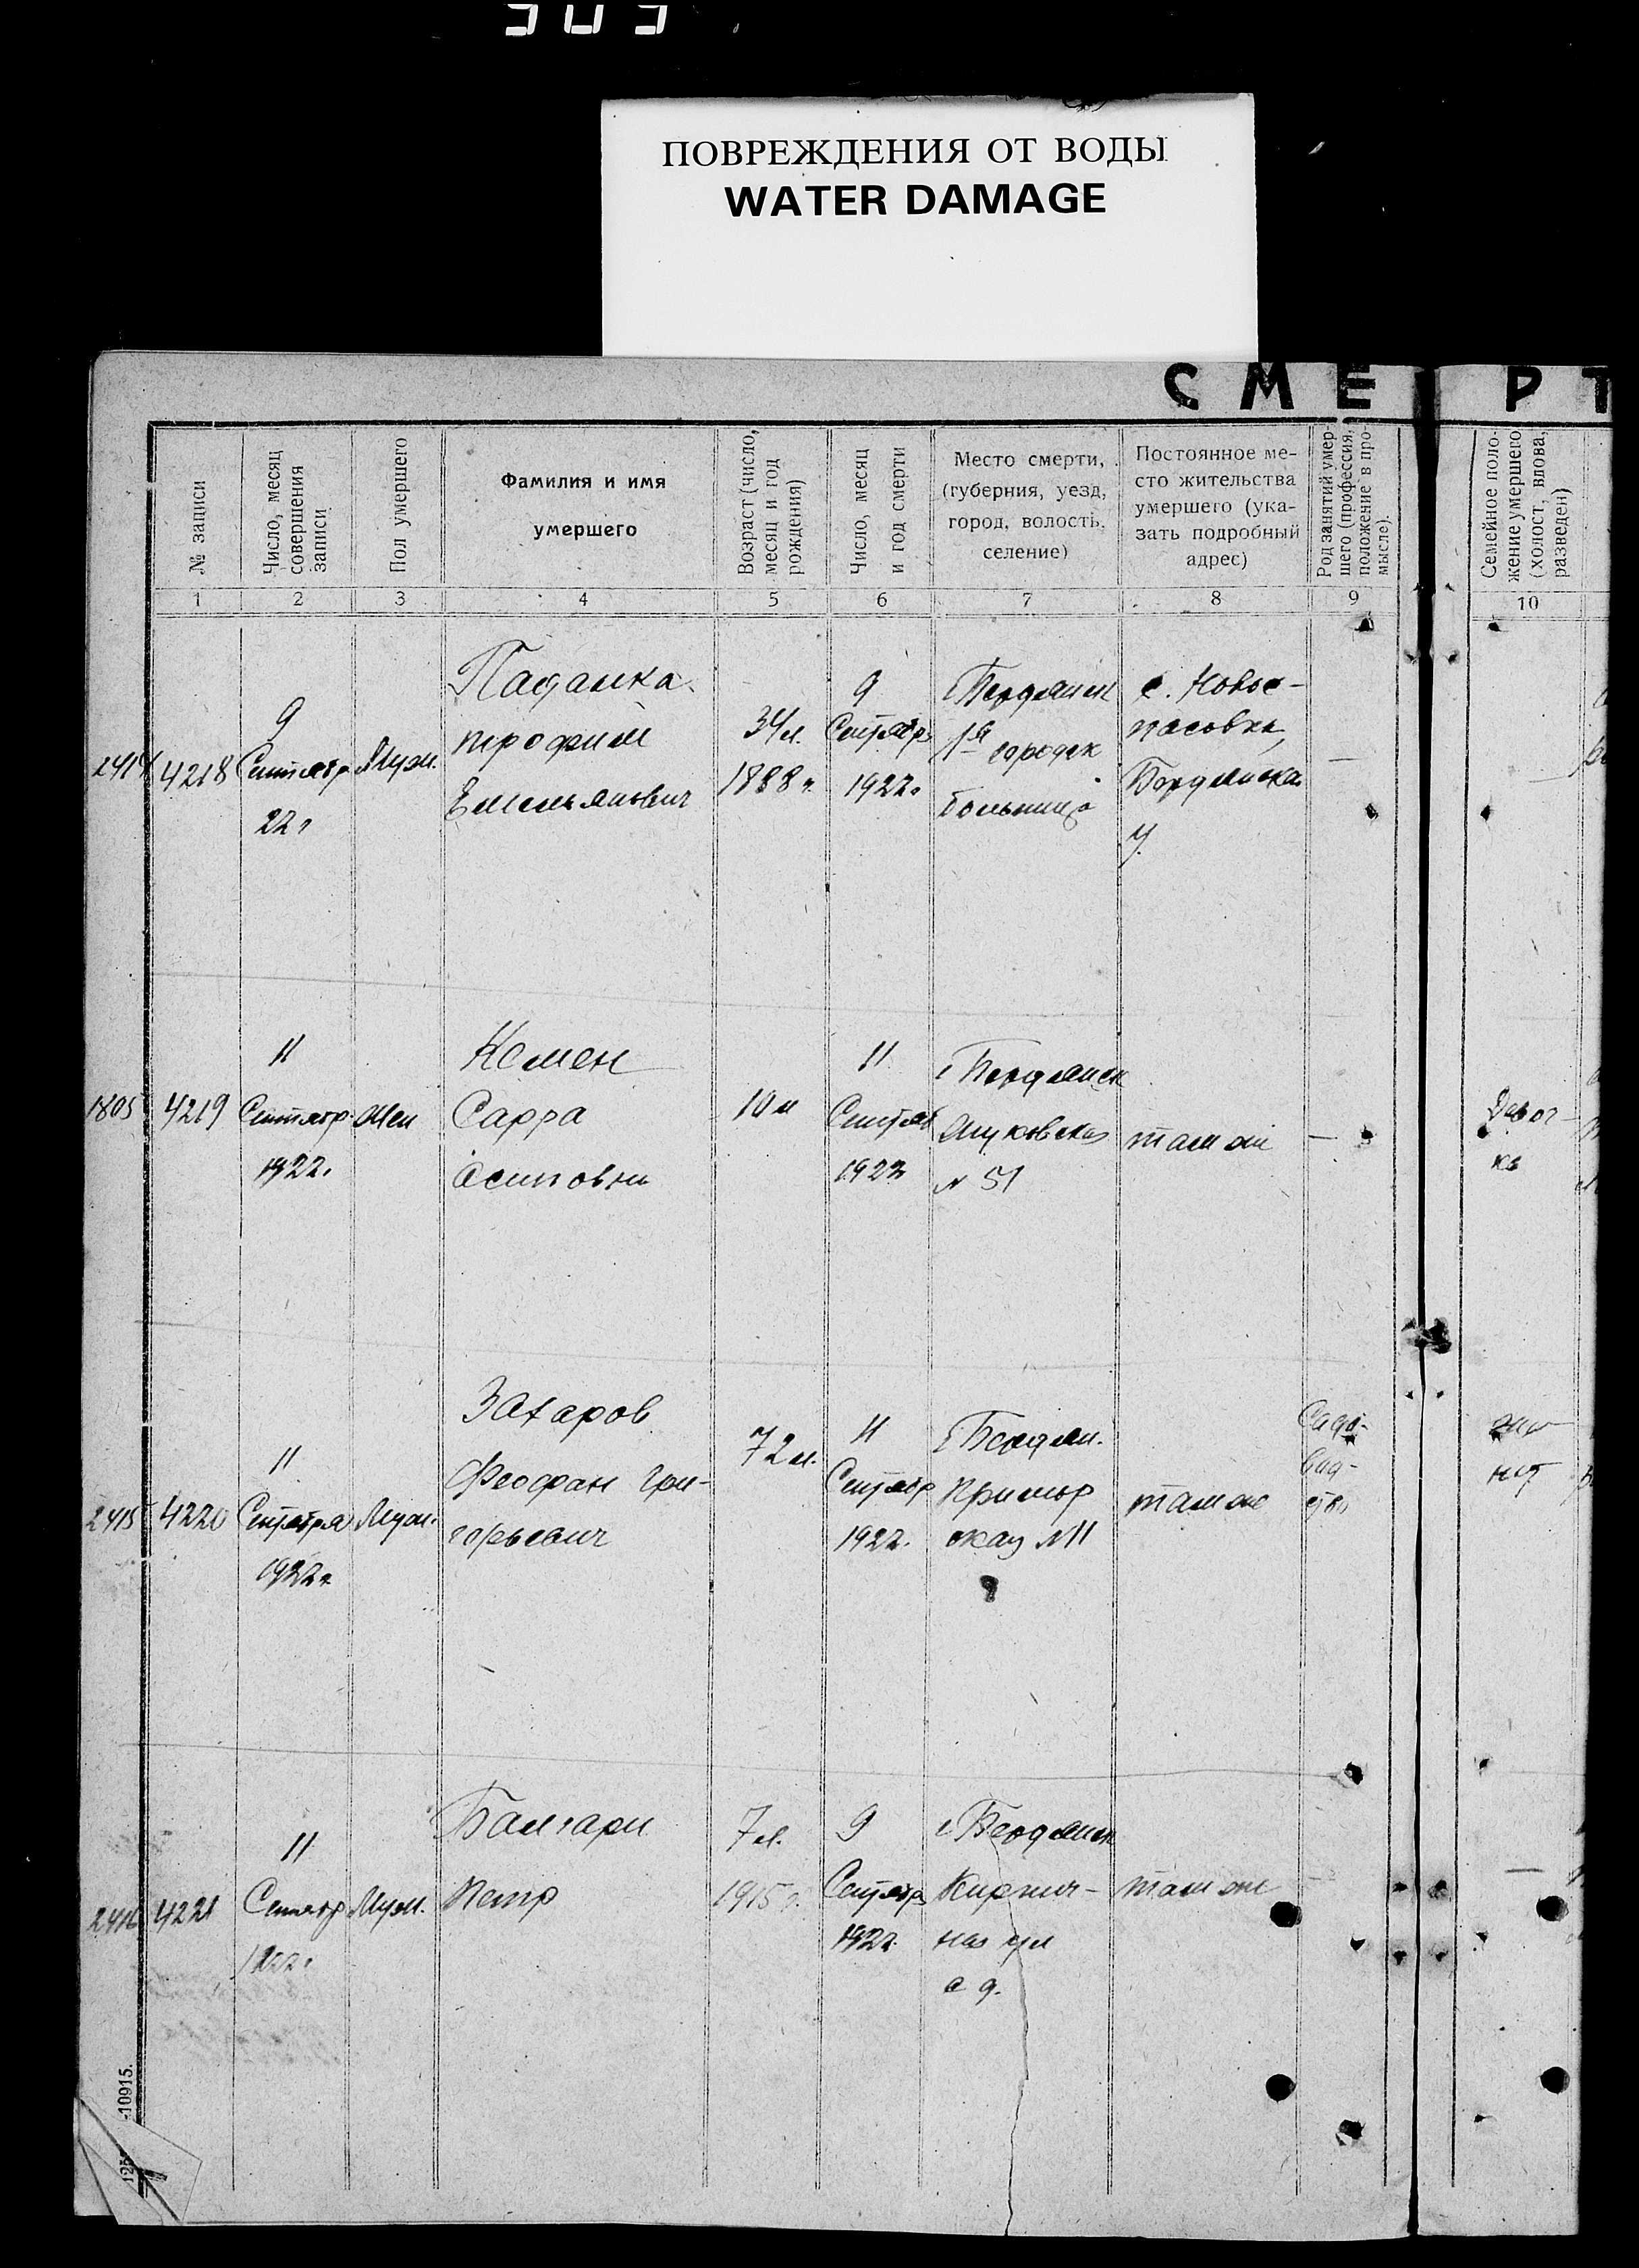 ПОВРЕЖДЕНИЯ ОТ ВОДЫ
WATER DAMAGE
СМЕРТ
№ записи
Число, месяц
совершения
записи
Пол умершего
Фамилия и имя
умершего
Возраст (число,
месяц и год
рождения)
Число, месяц
и год смерти
Место смерти,
(губерния, уезд,
город, волость,
селение)
Постоянное ме-
сто жительства
умершего (ука-
зать подробный
адрес)
Род занятий умер-
шего (профессия,
положение в про-
мысле).
Семейное поло-
жение умершего
(холост, вдова,
разведен)
1 2 3 4 5 6 7 8 9 10
2414
4218
9
Сентябр
22г
Муж.
Трофим
Емельянович
34л.
1888г.
9
Сентябр
1922г
г Бердянск
1я городск
больница
с. Новос-
пасовка,
Бердянска
у.
—
1805
4219
11
Сентябр
1922г
Жен
Кемен
Сарра
Осиповна
11
Сентяб
1922
г Бердянск
№ 51
там же
—
2415
4220
11
Сентября
1922г
Муж.
Захаров
Феофан Гри-
горьевич
72л.
11
Сентябр
1922г.
г Бердян.
Примор
ская №11
там же
Садо-
вод-
ство
2416
4221
11
Сентябр
1922г
Муж.
Петр
7л.
1915г.
9
Сентябр
1922г.
г Бердянск
Кирпич-
ная ул
с д.
там же
—
10915.